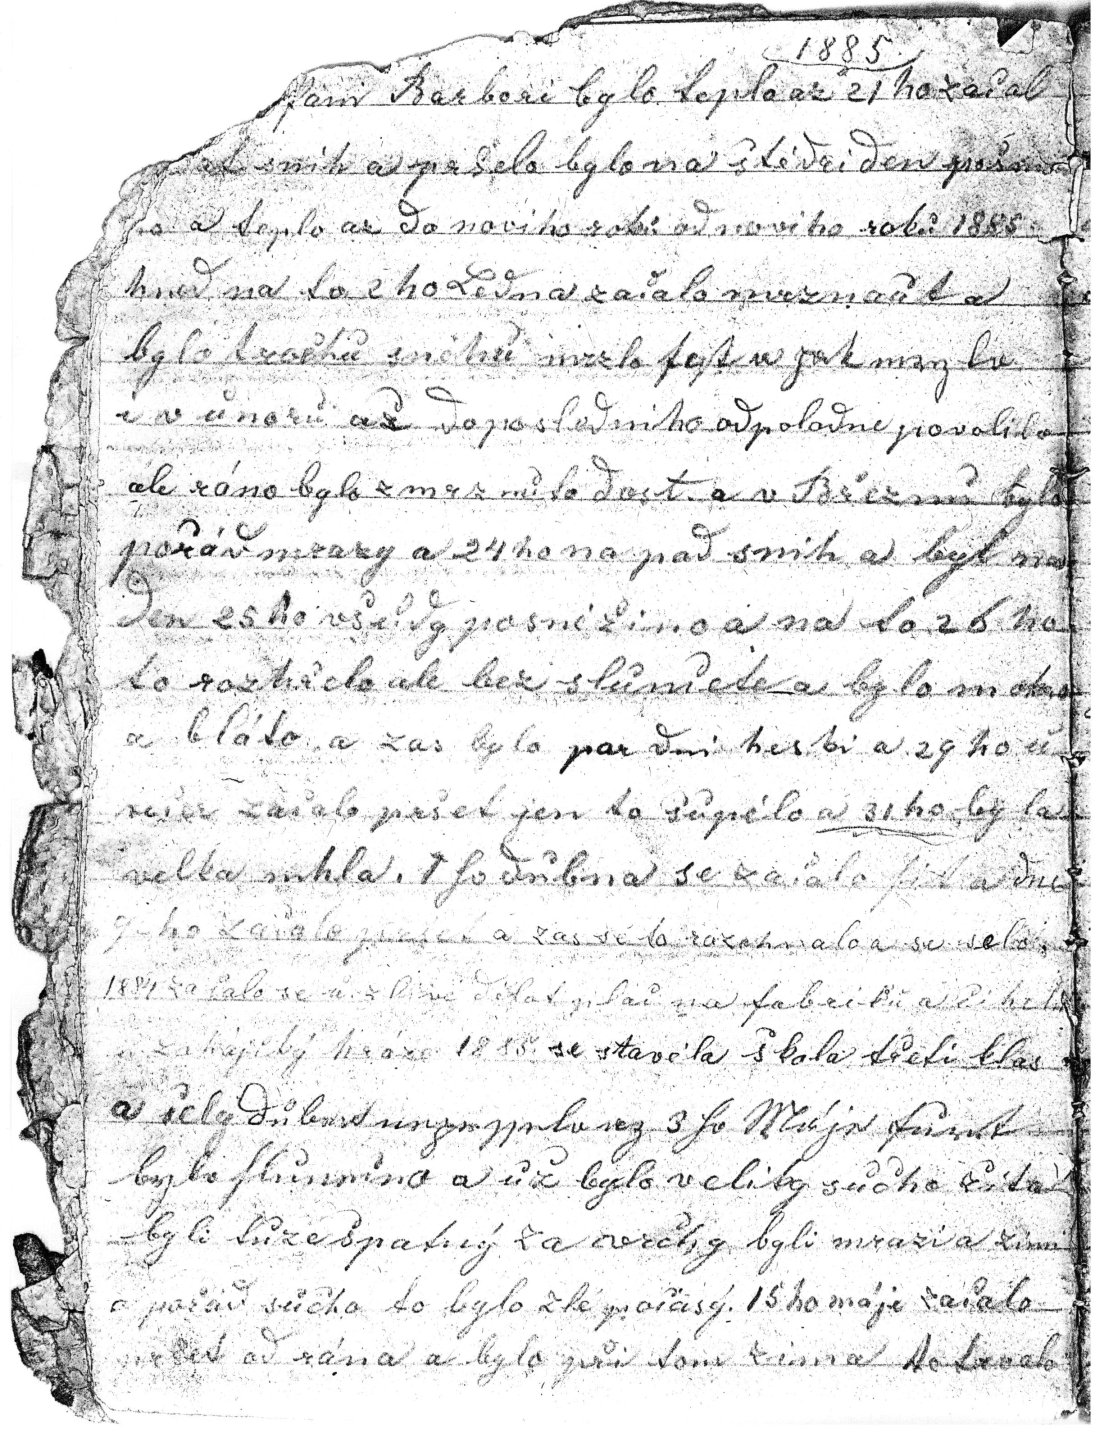 1885.
pani Barbori bylo teplo až 21 ho začal
snih a pršelo bylo na štědri den
a teplo až do noviho roků od noviho roků 1885
hned na to 2 ho Ledna začalo mrznaůt a
bylo trochů sněhů mrzlo
i v ůnorů až do posledniho odpoledne povolilo
ale ráno bylo zmrznůto dost. a v Březnů bylo
pořád mrazy a 24 ho napad snih a byl na
den 25 ho všůdy posněžino a na to 26 ho
to rozhřelo ale bez slůnične a bylo mokro
a bláto a zas bylo par dni heski a 29 ho ů
večer začalo pršet jen to šůpělo a 31 ho byla
velka mhla. 1 ho důbna se začalo a dne
9 ho začalo pršet a zas se to rozehnalo a se selo.
1884 začalo se dělat na fabriků a
hráze 1885 se stavěla škola třeti klas
a celý důben nepršelo až 3 ho Máje fůrt
bylo slunečno a ůž bylo veliky sůcho žita
byli tůze špatný za byli mrazi a zimi
a pořád sůcho to bylo zlé počasý. 15 ho máje začalo
pršet od rána a bylo při tom zima to trvalo